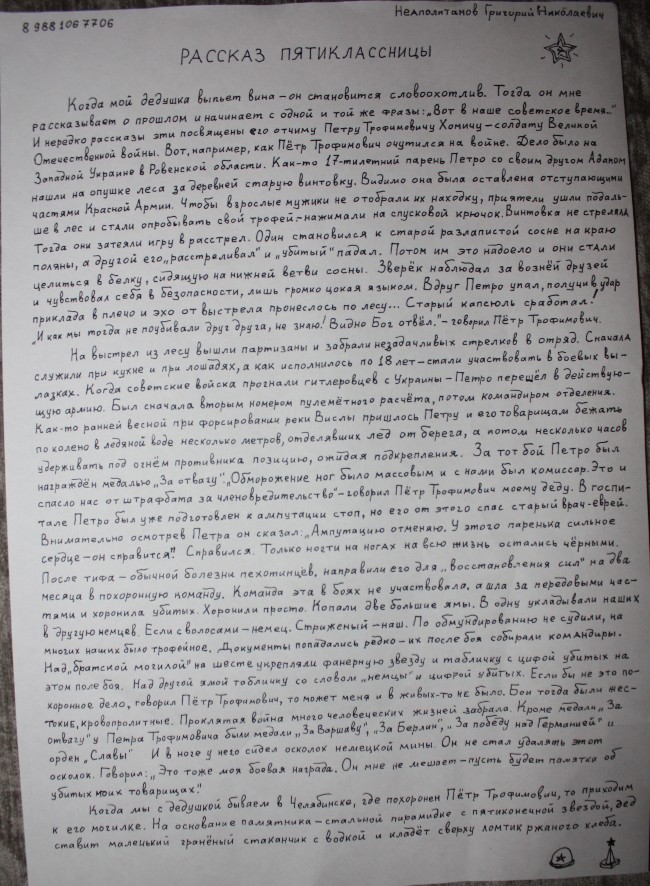 8 988 106 77 06
Неаполитанов Григорий Николаевич
РАССКАЗ ПЯТИКЛАССНИЦЫ
Когда мой дедушка выпьет вина – он становится словоохотлив. Тогда он мне
рассказывает о прошлом и начинает с одной и той же фразы: „Вот в наше советское время..."
И нередко рассказы эти посвящены его отчиму Петру Трофимовичу Хомичу – солдату Великой
Отечественной войны. Вот, например, как Пётр Трофимович очутился на войне. Дело было на
Западной Украине в Ровенской области. Как-то 17-тилетний парень Петро со своим другом Адамом
нашли на опушке леса за деревней старую винтовку. Видимо она была оставлена отступающими
частями Красной Армии. Чтобы взрослые мужики не отобрали их находку, приятели ушли подаль-
ше в лес и стали опробывать свой трофей – нажимали на спусковой крючок. Винтовка не стреляла
Тогда они затеяли игру в расстрел. Один становился к старой разлапистой сосне на краю
поляны, а другой его „расстреливал" и „убитый" падал. Потом им это надоело и они стали
целиться в белку, сидящую на нижней ветви сосны. Зверёк наблюдал за вознёй друзей
и чувствовал себя в безопасности, лишь громко цокая языком. Вдруг Петро упал, получив удар
приклада в плечо и эхо от выстрела пронеслось по лесу... Старый капсюль сработал!
„И как мы тогда не поубивали друг друга, не знаю! Видно Бог отвёл." – говорил Пётр Трофимович.
На выстрел из лесу вышли партизаны и забрали незадачливых стрелков в отряд. Сначала
служили при кухне и при лошадях, а как исполнилось по 18 лет – стали участвовать в боевых вы-
лазках. Когда советские войска прогнали гитлеровцев с Украины – Петро перешёл в действую-
щую армию. Был сначала вторым номером пулемётного расчёта, потом командиром отделения.
Как-то ранней весной при форсировании реки Вислы пришлось Петру и его товарищам бежать
по колено в ледяной воде несколько метров, отделявших лёд от берега, а потом несколько часов
удерживать под огнём противника позицию, ожидая подкрепления. За тот бой Петро был
награждён медалью „За отвагу". „Обморожение ног было массовым и с нами был комиссар. Это и
спасло нас от штрафбата за членовредительство" – говорил Пётр Трофимович моему деду. В госпи-
тале Петро был уже подготовлен к ампутации стоп, но его от этого спас старый врач-еврей.
Внимательно осмотрев Петра он сказал: „Ампутацию отменяю. У этого паренька сильное
сердце – он справится". Справился. Только ногти на ногах на всю жизнь остались чёрными.
После тифа – обычной болезни пехотинцев, направили его для „восстановления сил" на два
месяца в похоронную команду. Команда эта в боях не участвовала, а шла за передовыми час-
тями и хоронила убитых. Хоронили просто. Копали две большие ямы. В одну укладывали наших
в другую немцев. Если с волосами – немец. Стриженый – наш. По обмундированию не судили, на
многих наших было трофейное. Документы попадались редко – их после боя собирали командиры.
Над „братской могилой" на шесте укрепляли фанерную звезду и табличку с цифой убитых на
этом поле боя. Над другой ямой табличку со словом „немцы" и цифрой убитых. Если бы не это по-
хоронное дело, говорил Пётр Трофимович, то может меня и в живых-то не было. Бои тогда были жес-
токие, кровопролитные. Проклятая война много человеческих жизней забрала. Кроме медали „За
отвагу" у Петра Трофимовича были медали „За Варшаву", „За Берлин", „За победу над Германией" и
орден „Славы" И в ноге у него сидел осколок немецкой мины. Он не стал удалять этот
осколок. Говорил: „Это тоже моя боевая награда. Он мне не мешает – пусть будет памятка об
убитых моих товарищах".
Когда мы с дедушкой бываем в Челябинске, где похоронен Пётр Трофимович, то приходим
к его могилке. На основание памятника – стальной пирамидке с пятиконечной звездой, дед
ставит маленький гранёный стаканчик с водкой и кладёт сверху ломтик ржаного хлеба.